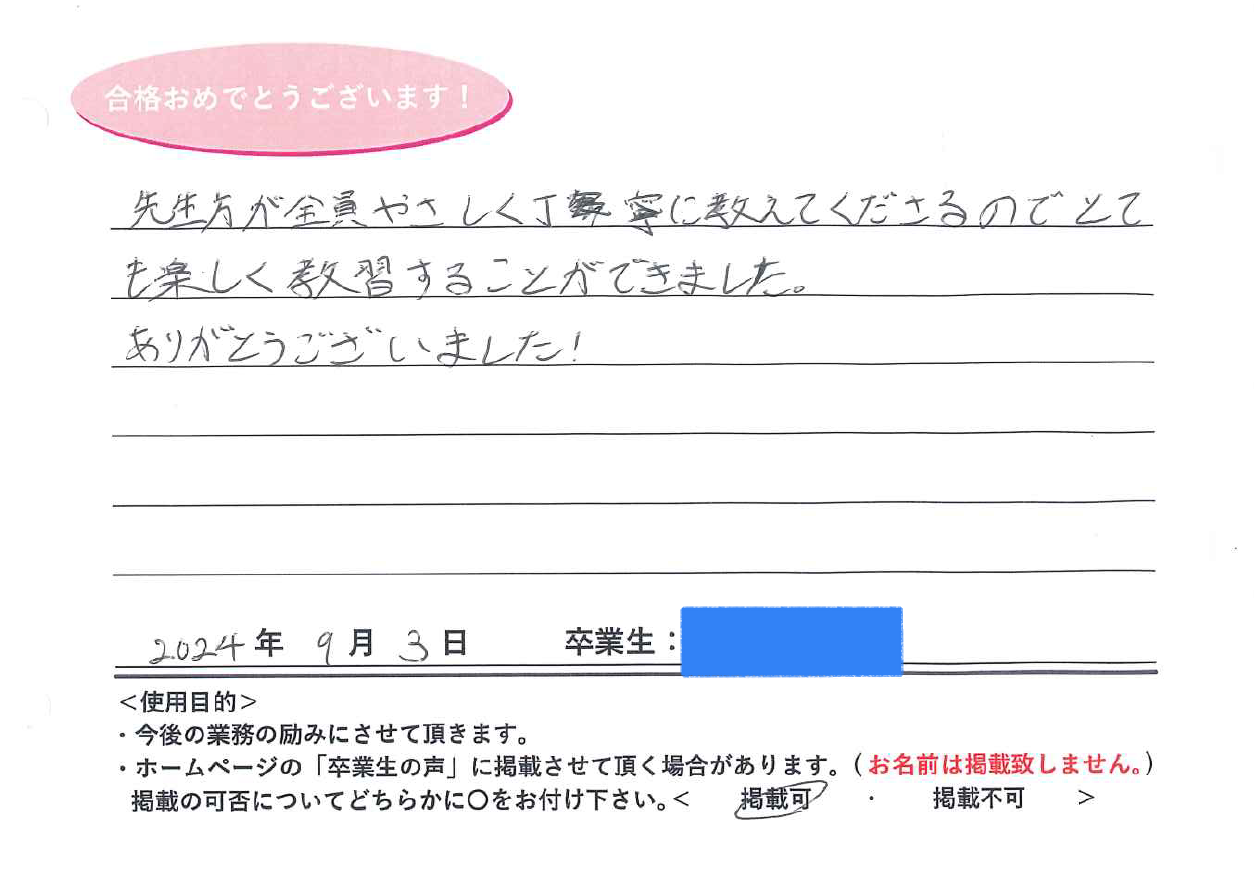 合格おめでとうございます！
先生方が全員やさしく丁寧に教えてくださるのでとて
も楽しく教習することができました。
ありがとうございました!
2024年 9月 3日 卒業生：
＜使用目的＞
・今後の業務の励みにさせて頂きます。
・ホームページの「卒業生の声」に掲載させて頂く場合があります。（お名前は掲載致しません。）
掲載の可否についてどちらかに〇をお付け下さい。＜ 掲載可 ・ 掲載不可 ＞